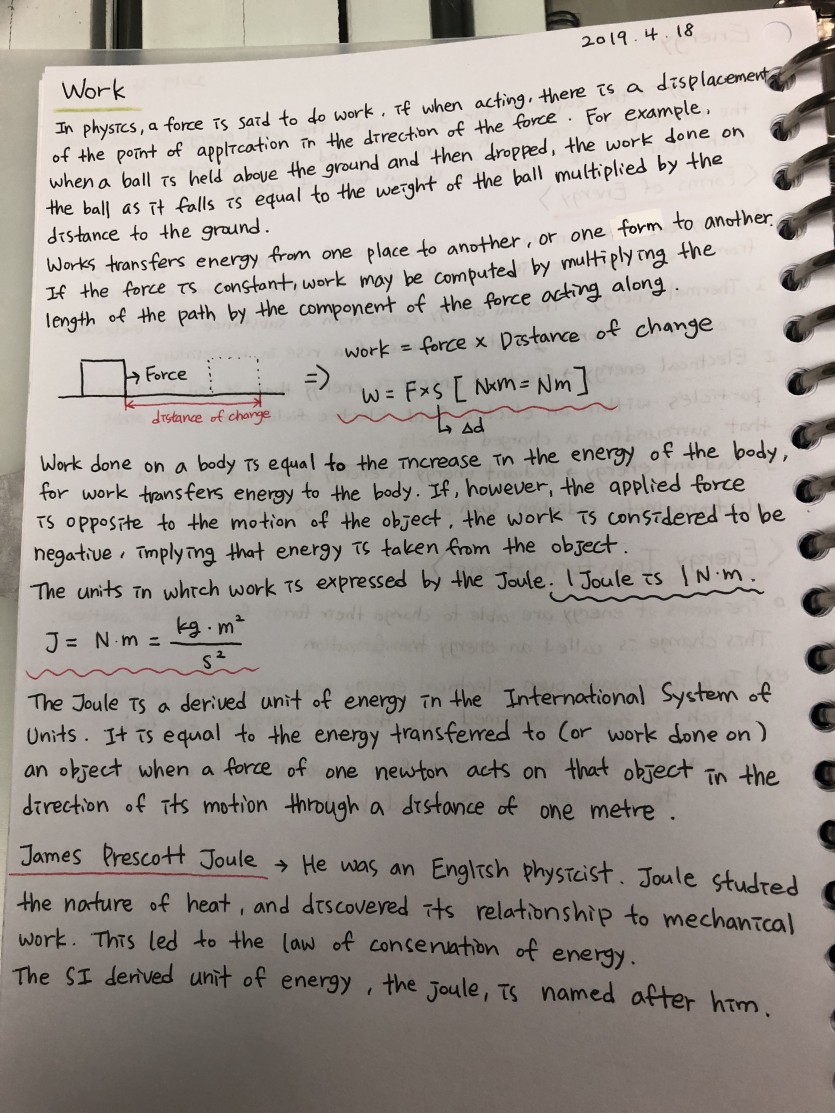 2019. 4. 18
Work
In physics, a force is said to do work, if when acting, there is a displacement
of the point of application in the direction of the force. For example,
when a ball is held above the ground and then dropped, the work done on
the ball as it falls is equal to the weight of the ball multiplied by the
distance to the ground.
Works transfers energy from one place to another, or one form to another.
If the force is constant, work may be computed by multiplying the
length of the path by the component of the force acting along.
→ Force
distance of change
=>
work = force × Distance of change
W = F×s [N×m = Nm]
↳ Δd
Work done on a body is equal to the increase in the energy of the body,
for work transfers energy to the body. If, however, the applied force
is opposite to the motion of the object, the work is considered to be
negative, implying that energy is taken from the object.
The units in which work is expressed by the Joule. 1 Joule is 1 N·m.
J = N·m = kg·m² / s²
The Joule is a derived unit of energy in the International System of
Units. It is equal to the energy transferred to (or work done on)
an object when a force of one newton acts on that object in the
direction of its motion through a distance of one metre.
James Prescott Joule → He was an English physicist. Joule studied
the nature of heat, and discovered its relationship to mechanical
work. This led to the law of conservation of energy.
The SI derived unit of energy, the joule, is named after him.